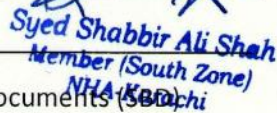 Syed Shabbir Ali Shah
Member (South Zone)
NHA Karachi
ocuments (SBD)